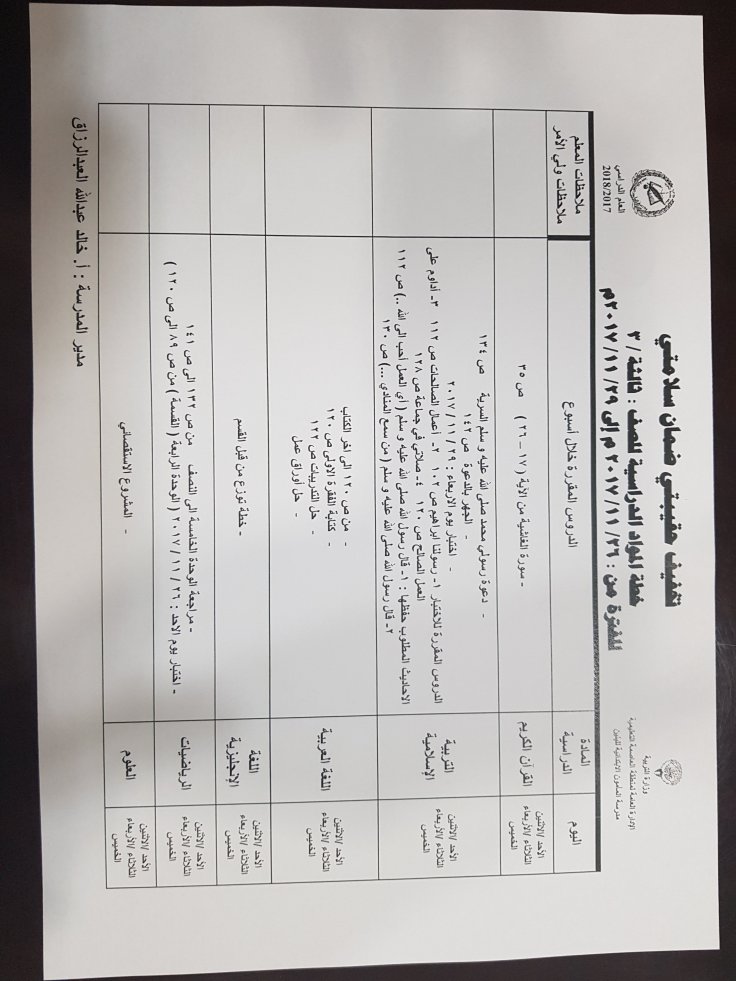 وزارة التربية
الإدارة العامة لمنطقة العاصمة التعليمية
العام الدراسي
2018/2017
تخفيف حقيبتي ضمان سلامتي
خطة المواد الدراسية للصف : ثالثة / ٣
للفترة من : ٢٦ / ١١ / ٢٠١٧ م إلى ٢٩ / ١١ / ٢٠١٧ م
اليوم
المادة الدراسية
الدروس المقررة خلال أسبوع
ملاحظات المعلم
ملاحظات ولي الأمر
الأحد /الاثنين
الثلاثاء /الأربعاء
الخميس
القرآن الكريم
- سورة الغاشية من الآية ( ١٧ – ٢٦ ) ص ٣٥
الأحد /الاثنين
الثلاثاء /الأربعاء
الخميس
التربية
الإسلامية
- دعوة رسولي محمد صلى الله عليه و سلم السرية ص ١٣٤
- الجهر بالدعوة ص ١٤٢
- اختبار يوم الاربعاء : ٢٩ / ١١ / ٢٠١٧
الدروس المقررة للاختبار ١- رسولنا ابراهيم ص ١٠٢ ٢- أعمال الصالحات ص ١١٢ ٣- أداوم على
العمل الصالح ص ١٢٠ ٤- صلاتي في جماعة ص ١٢٨
الاحاديث المطلوب حفظها : ١- قال رسول الله صلى الله عليه و سلم ( أي العمل أحب الى الله ..) ص ١١٢
٢- قال رسول الله صلى الله عليه و سلم ( من سمع المنادي ...) ص ١٣٠
الأحد /الاثنين
الثلاثاء /الأربعاء
الخميس
اللغة العربية
- من ص ١٢٠ الى اخر الكتاب
- كتابة الفقرة الاولى ص ١٢٠
- حل التدريبات ص ١٢٢
- حل أوراق عمل
الأحد /الاثنين
الثلاثاء /الأربعاء
الخميس
اللغة
الإنجليزية
- خطة توزع من قبل القسم
الأحد /الاثنين
الثلاثاء /الأربعاء
الخميس
الرياضيات
- مراجعة الوحدة الخامسة الى النصف من ص ١٣٢ الى ص ١٤١
- اختبار يوم الاحد : ٢٦ / ١١ / ٢٠١٧ ( الوحدة الرابعة ( القسمة ) من ص ٨٩ الى ص ١٢٠ )
الأحد /الاثنين
الثلاثاء /الأربعاء
الخميس
العلوم
- المشروع الاستقصائي
مدير المدرسة : أ. خالد عبدالله العبدالرزاق